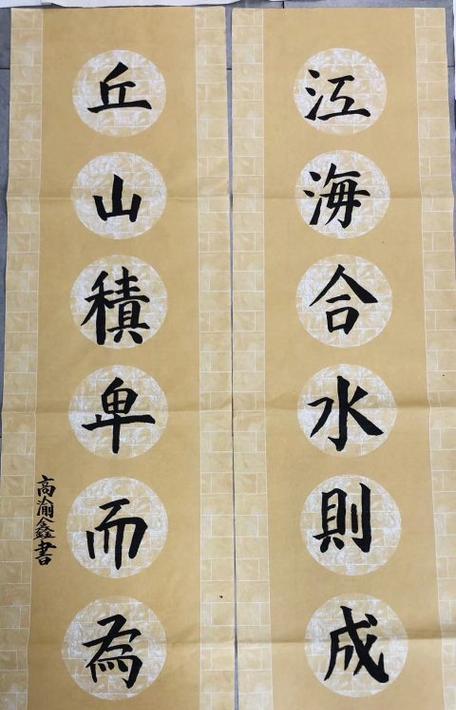 江海合水則成
丘山積卑而為
高渝鑫書